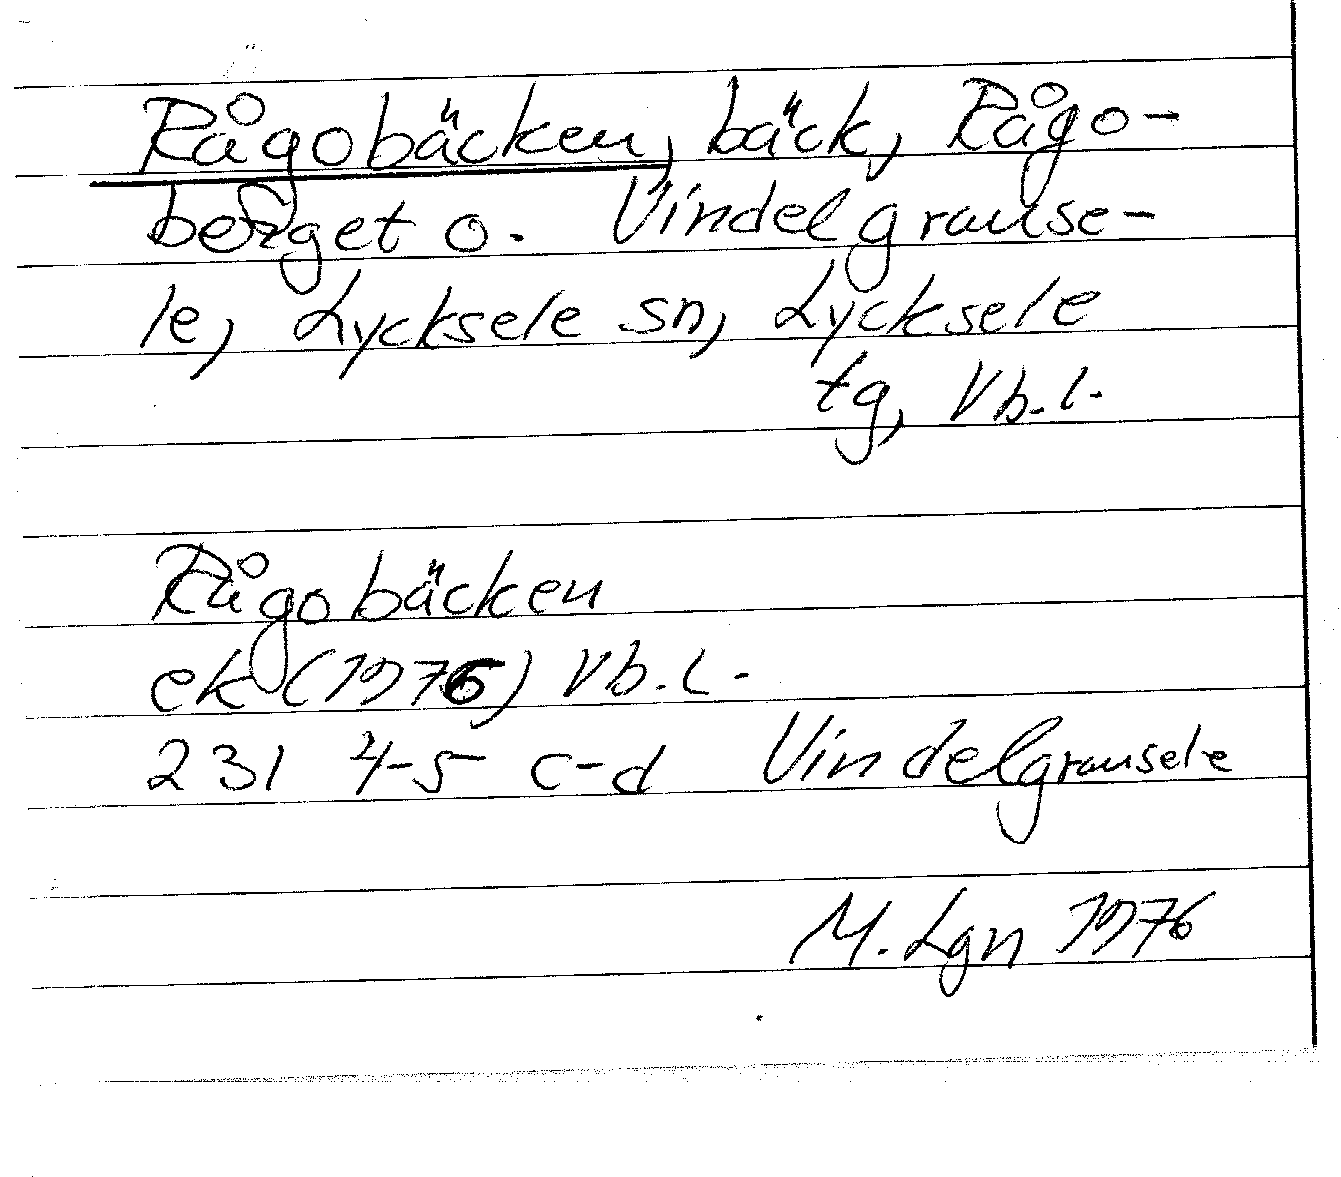 Rågobäcken, bäck, Rågo-
berget o. Vindelgranse-
le, Lycksele sn, Lycksele
tg, Vb.l.
Rågobäcken
ek (1976) Vb.l.
231 4-5 c-d Vindelgransele
M. Lgn 1976